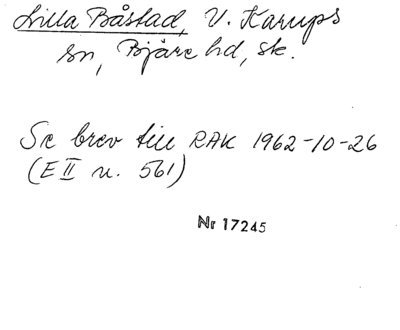 Lilla Båstad, V. Karups
sn, Bjäre hd, sk.
Se brev till RAK 1962-10-26
(E II n. 561)
Nr 17245